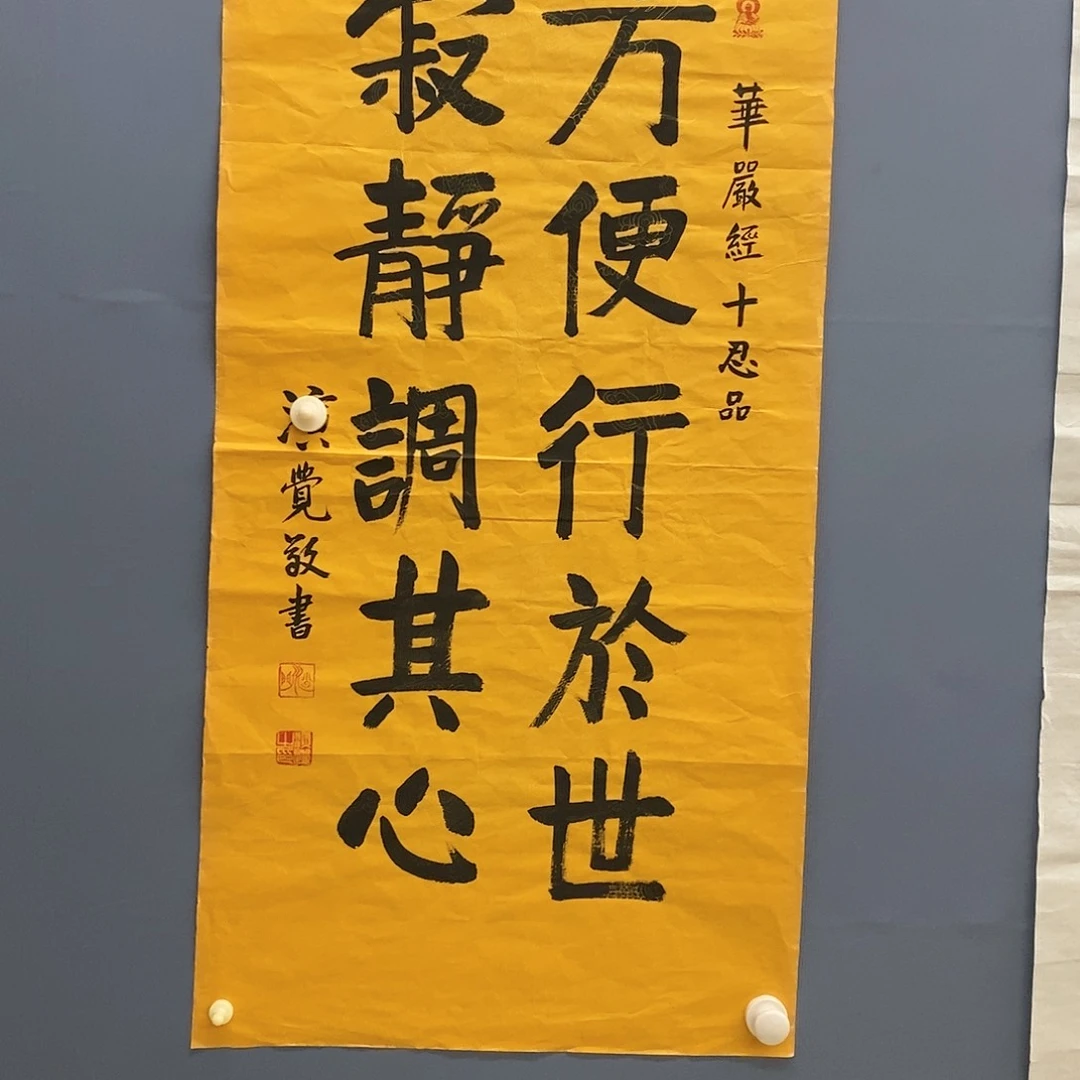 華嚴經十忍品
方便行於世
寂靜調其心
演覺敬書